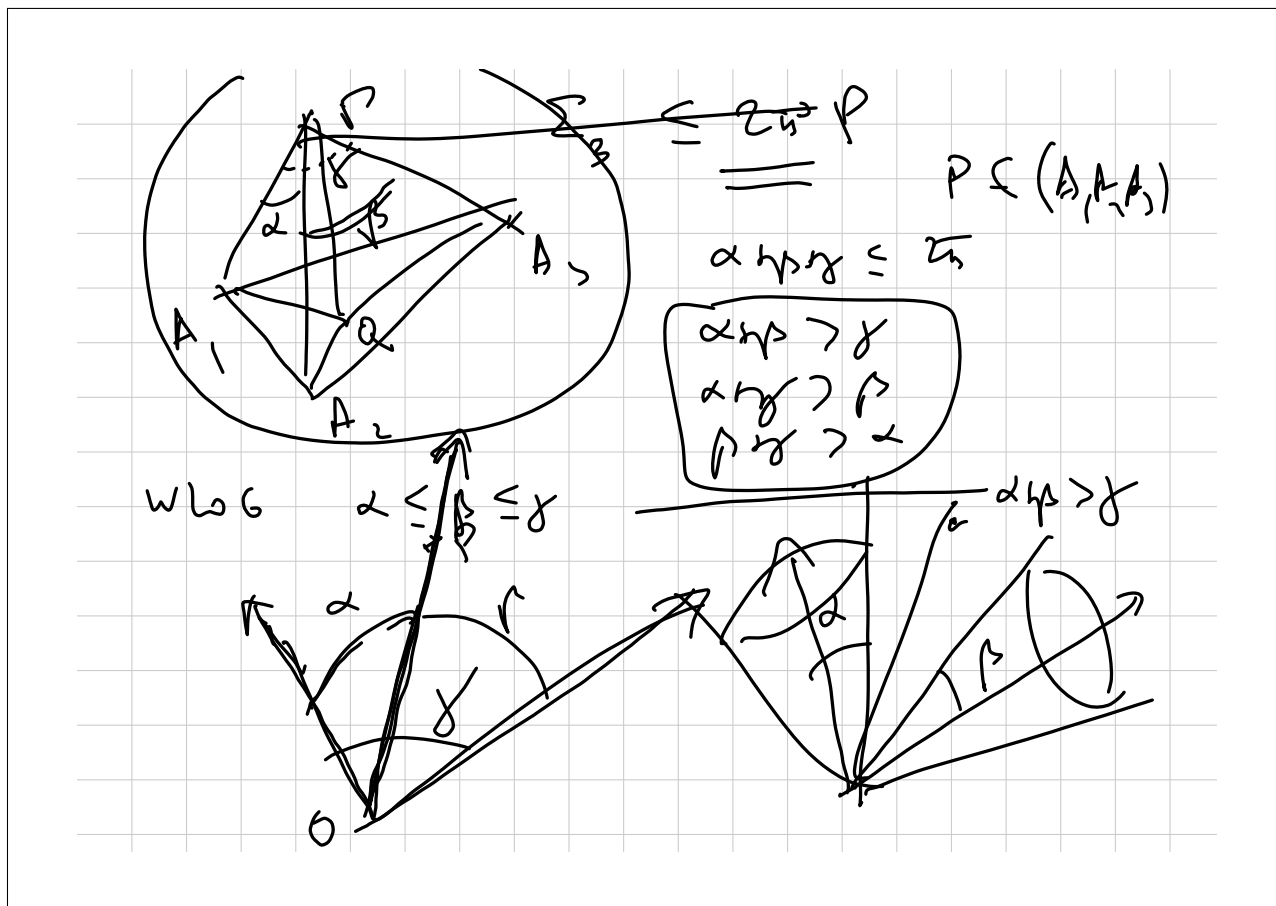 γ
α
β
A₁
A₂
A₃
Q
≤ 2π
P
P ∈ (A₁A₂A₃)
α+β+γ ≤ 2π
α+β > γ
α+γ > β
β+γ > α
WLOG α ≤ β ≤ γ
α+β > γ
α
γ
O
α
β